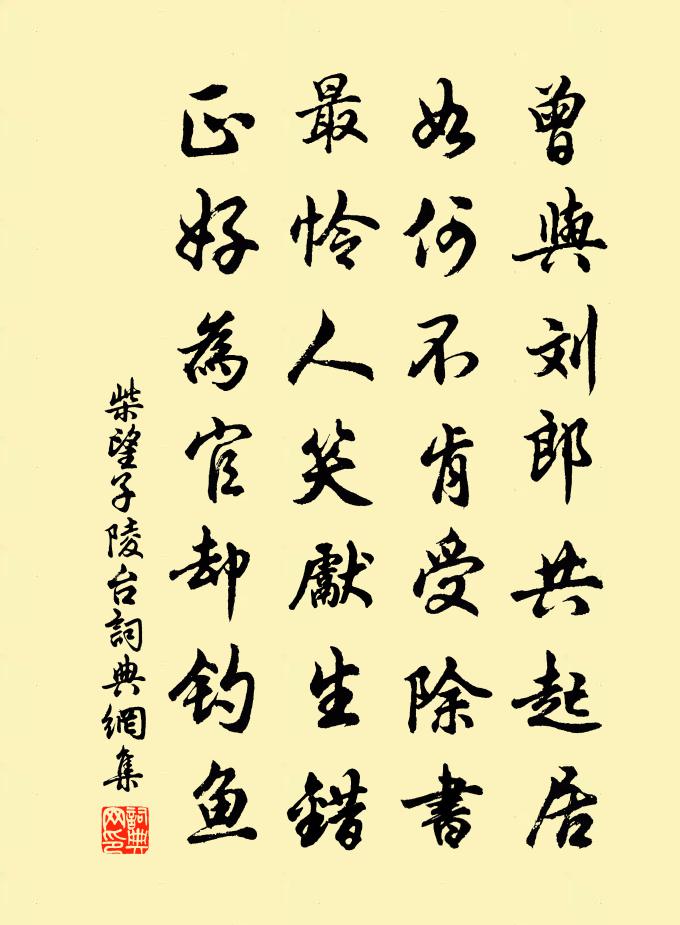 曾與刘郎共起居
如何不肯受除書
最怜人笑獻生錯
正好為官却钓鱼
柴望子陵台詞典網集
詞典網印